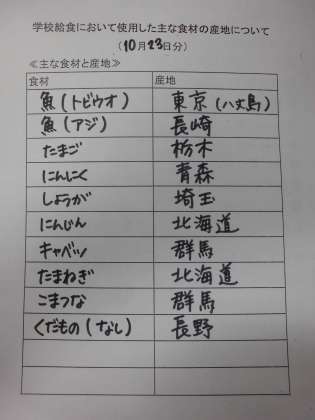 学校給食において使用した主な食材の産地について
(10月23日分)
≪主な食材と産地≫
食材 産地
魚(トビウオ) 東京(八丈島)
魚(アジ) 長崎
たまご 栃木
にんにく 青森
しょうが 埼玉
にんじん 北海道
キャベツ 群馬
たまねぎ 北海道
こまつな 群馬
くだもの(なし) 長野